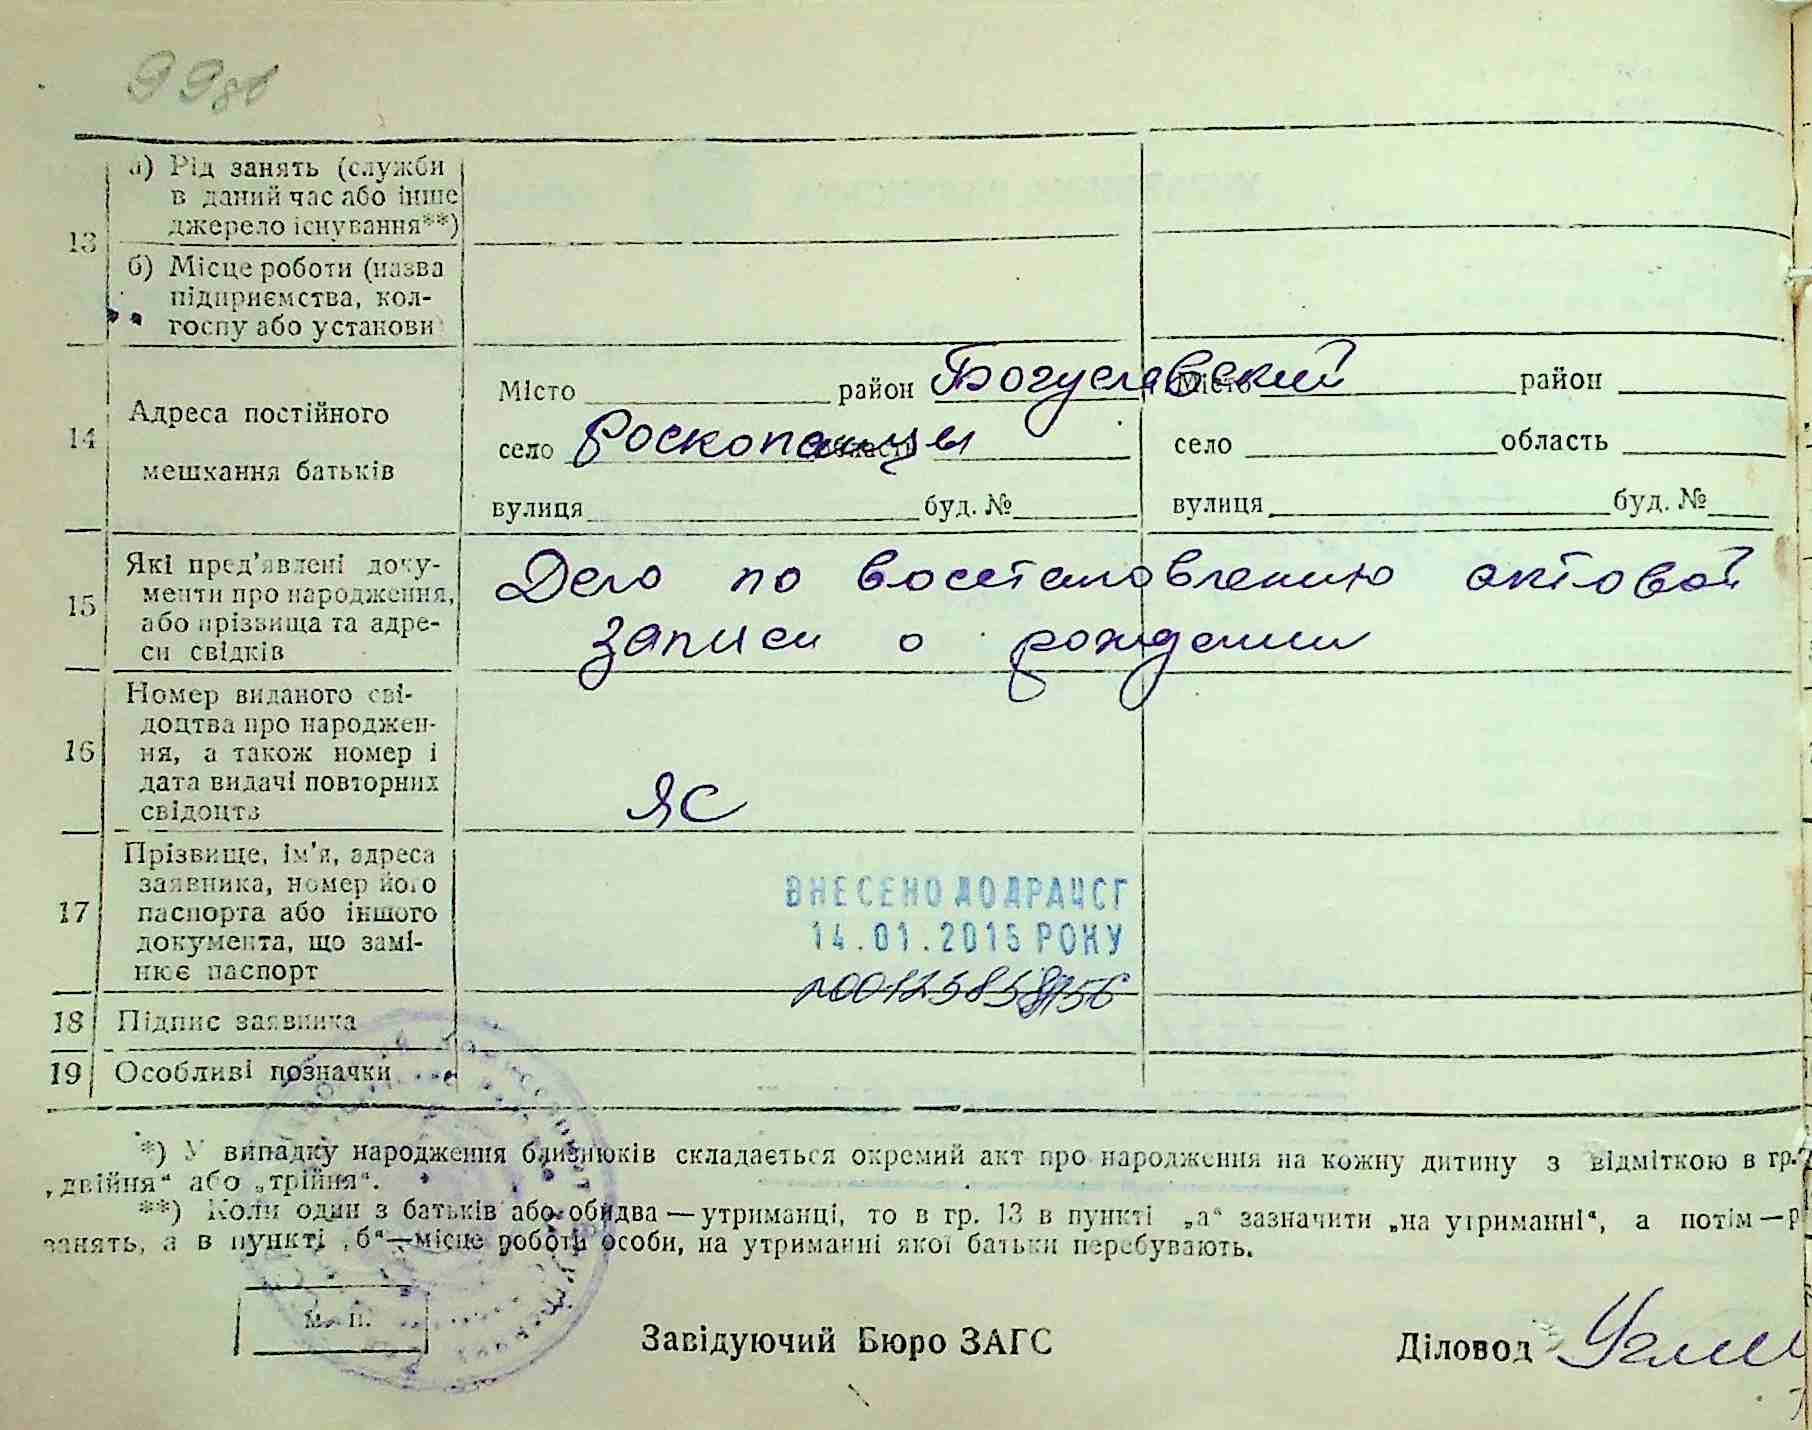 99об
а) Рід занять (служби
в даний час або інше
джерело існування**)
13
б) Місце роботи (назва
підприємства, кол-
госпу або установи)
14
Адреса постійного
мешхання батьків
Місто район Богуславский
село Роскопанцы область
вулиця буд. №
Місто район
село область
вулиця буд. №
15
Які пред'явлені доку-
менти про народження,
або прізвища та адре-
си свідків
Дело по восстановлению актовой
записи о рождении
16
Номер виданого сві-
доцтва про народжен-
ня, а також номер і
дата видачі повторних
свідоцтв
ЯС
17
Прізвище, ім'я, адреса
заявника, номер його
паспорта або іншого
документа, що замі-
нює паспорт
ВНЕСЕНО ДО ДРАЦСГ
14.01.2015 РОКУ
18 Підпис заявника
19 Особливі позначки
*) У випадку народження близнюків складається окремий акт про народження на кожну дитину з відміткою в гр. 7
„двійня“ або „трійня“.
**) Коли один з батьків або обидва — утриманці, то в гр. 13 в пункті „а“ зазначити „на утриманні“, а потім — р
занять, а в пункті „б“—місце роботи особи, на утриманні якої батьки перебувають.
м. п.
Завідуючий Бюро ЗАГС
Діловод